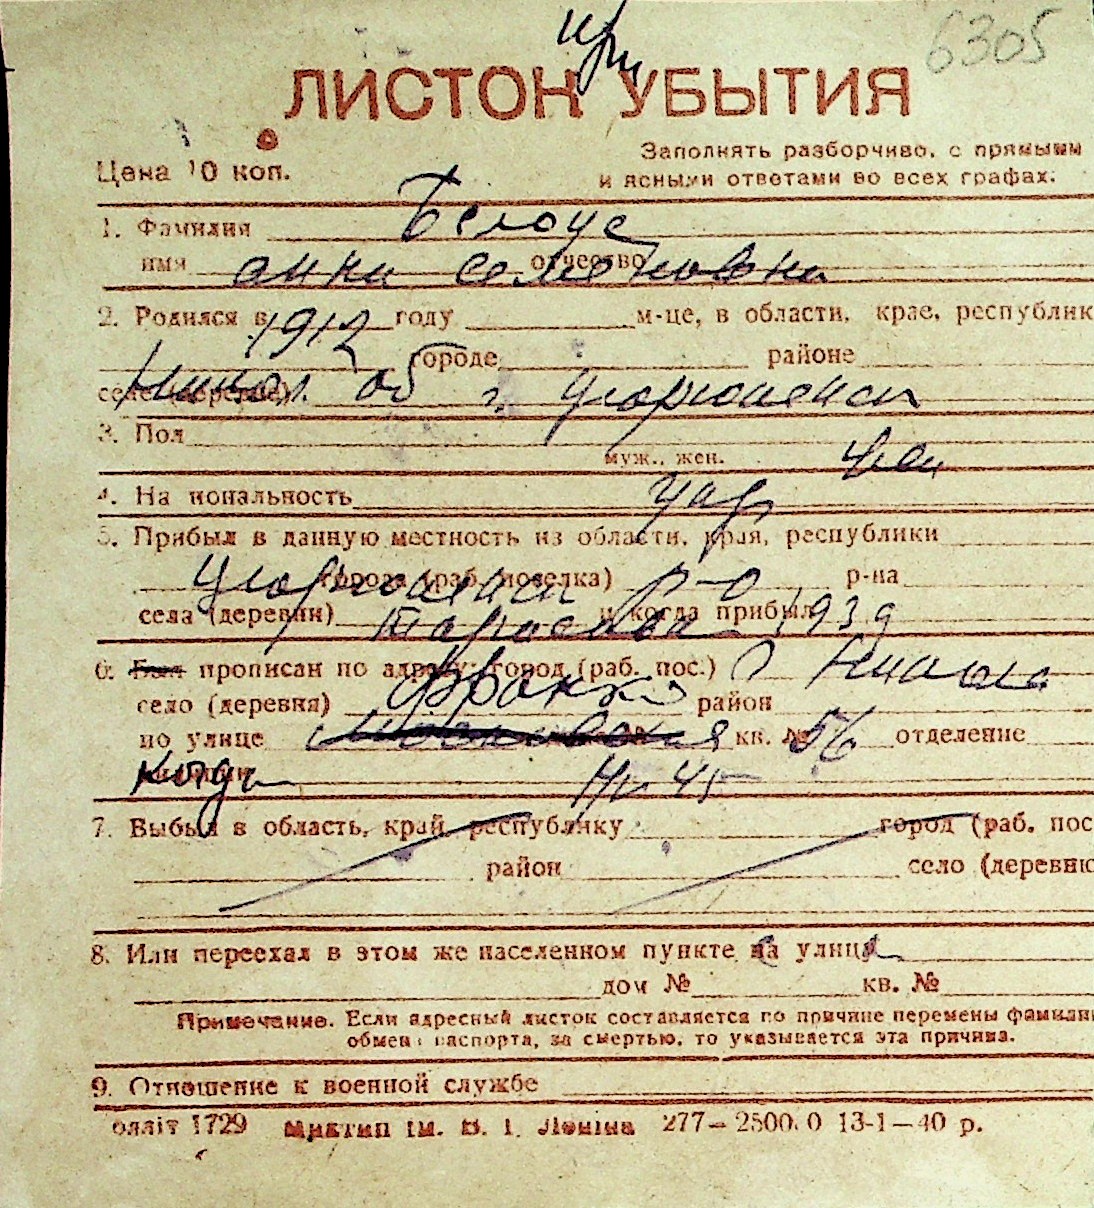 при 6305
ЛИСТОК УБЫТИЯ
Заполнять разборчиво, с прямыми
Цена 10 коп.
и ясными ответами во всех графах.
1. Фамилия Белоус
имя отчество анна семеновна
2. Родился в 1912 году м-це, в области, крае, республик
городе районе
селе (деревне) Никол. об г.
3. Пол
муж., жен. жен
4. Национальность укр
5. Прибыл в данную местность из области, края, республики
города (раб. поселка) р-на
села (деревни) и когда прибыл 1939
6. Был прописан по адресу: город (раб. пос.)
село (деревня) Франко район
по улице Московская кв. № 56 отделение
когда
7. Выбыл в область, край, республику город (раб. пос
район село (деревню
8. Или переехал в этом же населенном пункте на улицу
дом № кв. №
Примечание. Если адресный листок составляется по причине перемены фамилии
обмена паспорта, за смертью, то указывается эта причина.
9. Отношение к военной службе
олліт 1729 Миктип ім. В. І. Леніна 277—2500.0 13-1—40 р.